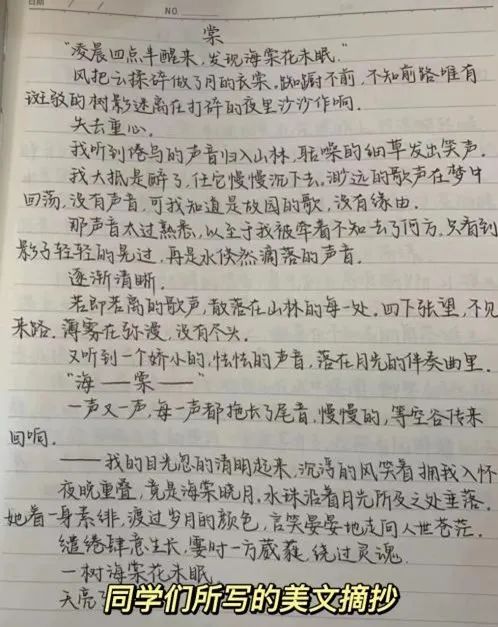 日期
NO
棠
“凌晨四点半醒来，发现海棠花未眠。”
风把云揉碎做了月的衣裳。踟蹰不前，不知前路唯有
斑驳的树影迷离在打碎的夜里沙沙作响。
失去重心。
我听到倦鸟的声音归入山林，聒噪的细草发出笑声。
我大抵是醉了，任它慢慢沉下去。渺远的歌声在梦中
回荡，没有声音，可我知道是故园的歌，没有缘由。
那声音太过熟悉，以至于我被牵着不知去了何方，只看到
影子轻轻的晃过，再是水倏然滴落的声音。
逐渐清晰。
若即若离的歌声，散落在山林的每一处。四下张望，不见
来路。薄雾在弥漫，没有尽头。
又听到一个娇小的，怯怯的声音，落在月光的伴奏曲里。
“海——棠——”
一声又一声，每一声都拖长了尾音，慢慢的，等空谷传来
回响。
——我的目光忽的清明起来，沉湎的风笑着拥我入怀
夜晚重叠，竟是海棠晓月。水珠沿着月光所及之处垂落。
她着一身素绯，渡过岁月的颜色，言笑晏晏地走向人世苍茫。
缱绻肆意生长，霎时一方葳蕤，绕过灵魂。
一树海棠花未眠
天亮了
同学们所写的美文摘抄